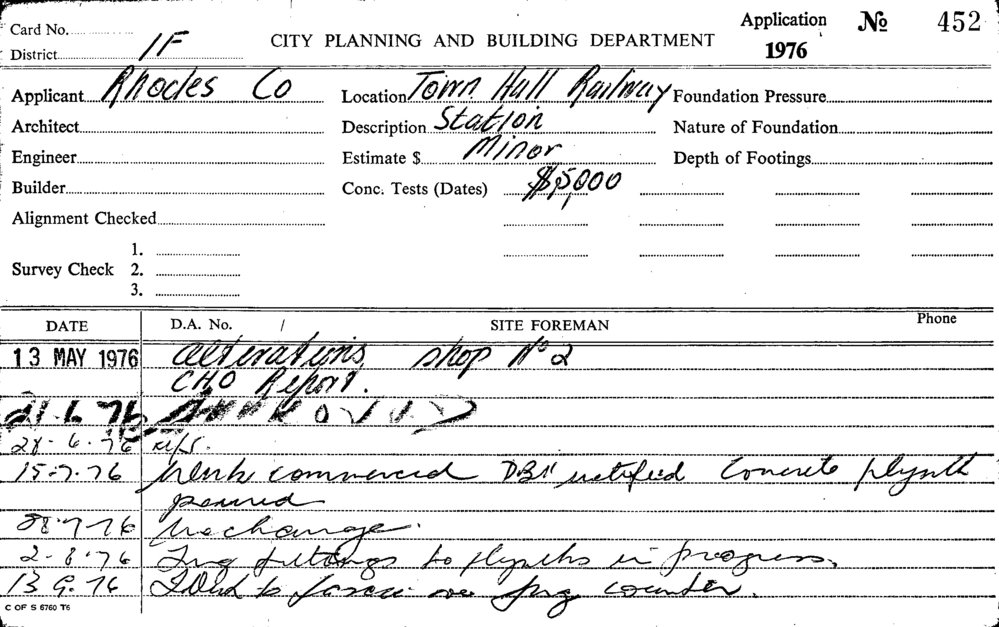 Card No. Application № 452
District 1F CITY PLANNING AND BUILDING DEPARTMENT 1976
Applicant Rhodes Co Location Town Hall Railway Foundation Pressure
Architect Description Station Nature of Foundation
Engineer Estimate $ Minor Depth of Footings
Builder Conc. Tests (Dates) $5,000
Alignment Checked
1.
Survey Check 2.
3.
DATE D.A. No. / SITE FOREMAN Phone
13 MAY 1976 alterations, shop No 2
CHO Report.
21.6 76 APPROVED
28-6-76 N/S.
15-7-76 Work commenced DBI notified Concrete plynth
poured
28-7-76 No change.
2-8-76 fittings to plynths in progress.
13 9.76 to over counter.
C OF S 6760 T6